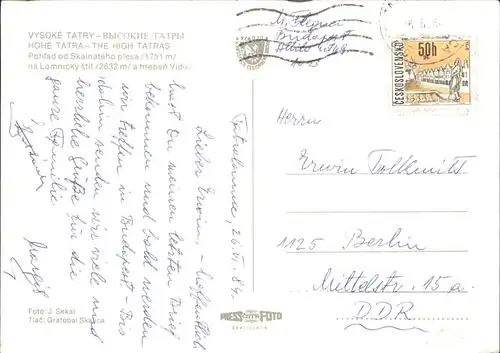 VYSOKÉ TATRY – ВЫСОКИЕ ТАТРЫ
HOHE TATRA – THE HIGH TATRAS
Pohľad od Skalnatého plesa /1751 m/
na Lomnický štít /2632 m/ a hrebeň Vidl
Budapest
50h
ČESKOSLOVENSKO
26. VI. 84.
Lieber Erwin, – hoffentlich
hast Du meinen letzten Brief
bekommen und bald werden
wir treffen in Budapest – Bis
dahin senden wir viele und
herzliche Grüße für die
ganze Familie
Margit
Herrn
Erwin Tollkmitt
1125 Berlin
Mittelstr. 15 a.
DDR
Foto: J. Sekal
Tlač: Grafobal Skalica
PRESS FOTO
BRATISLAVA